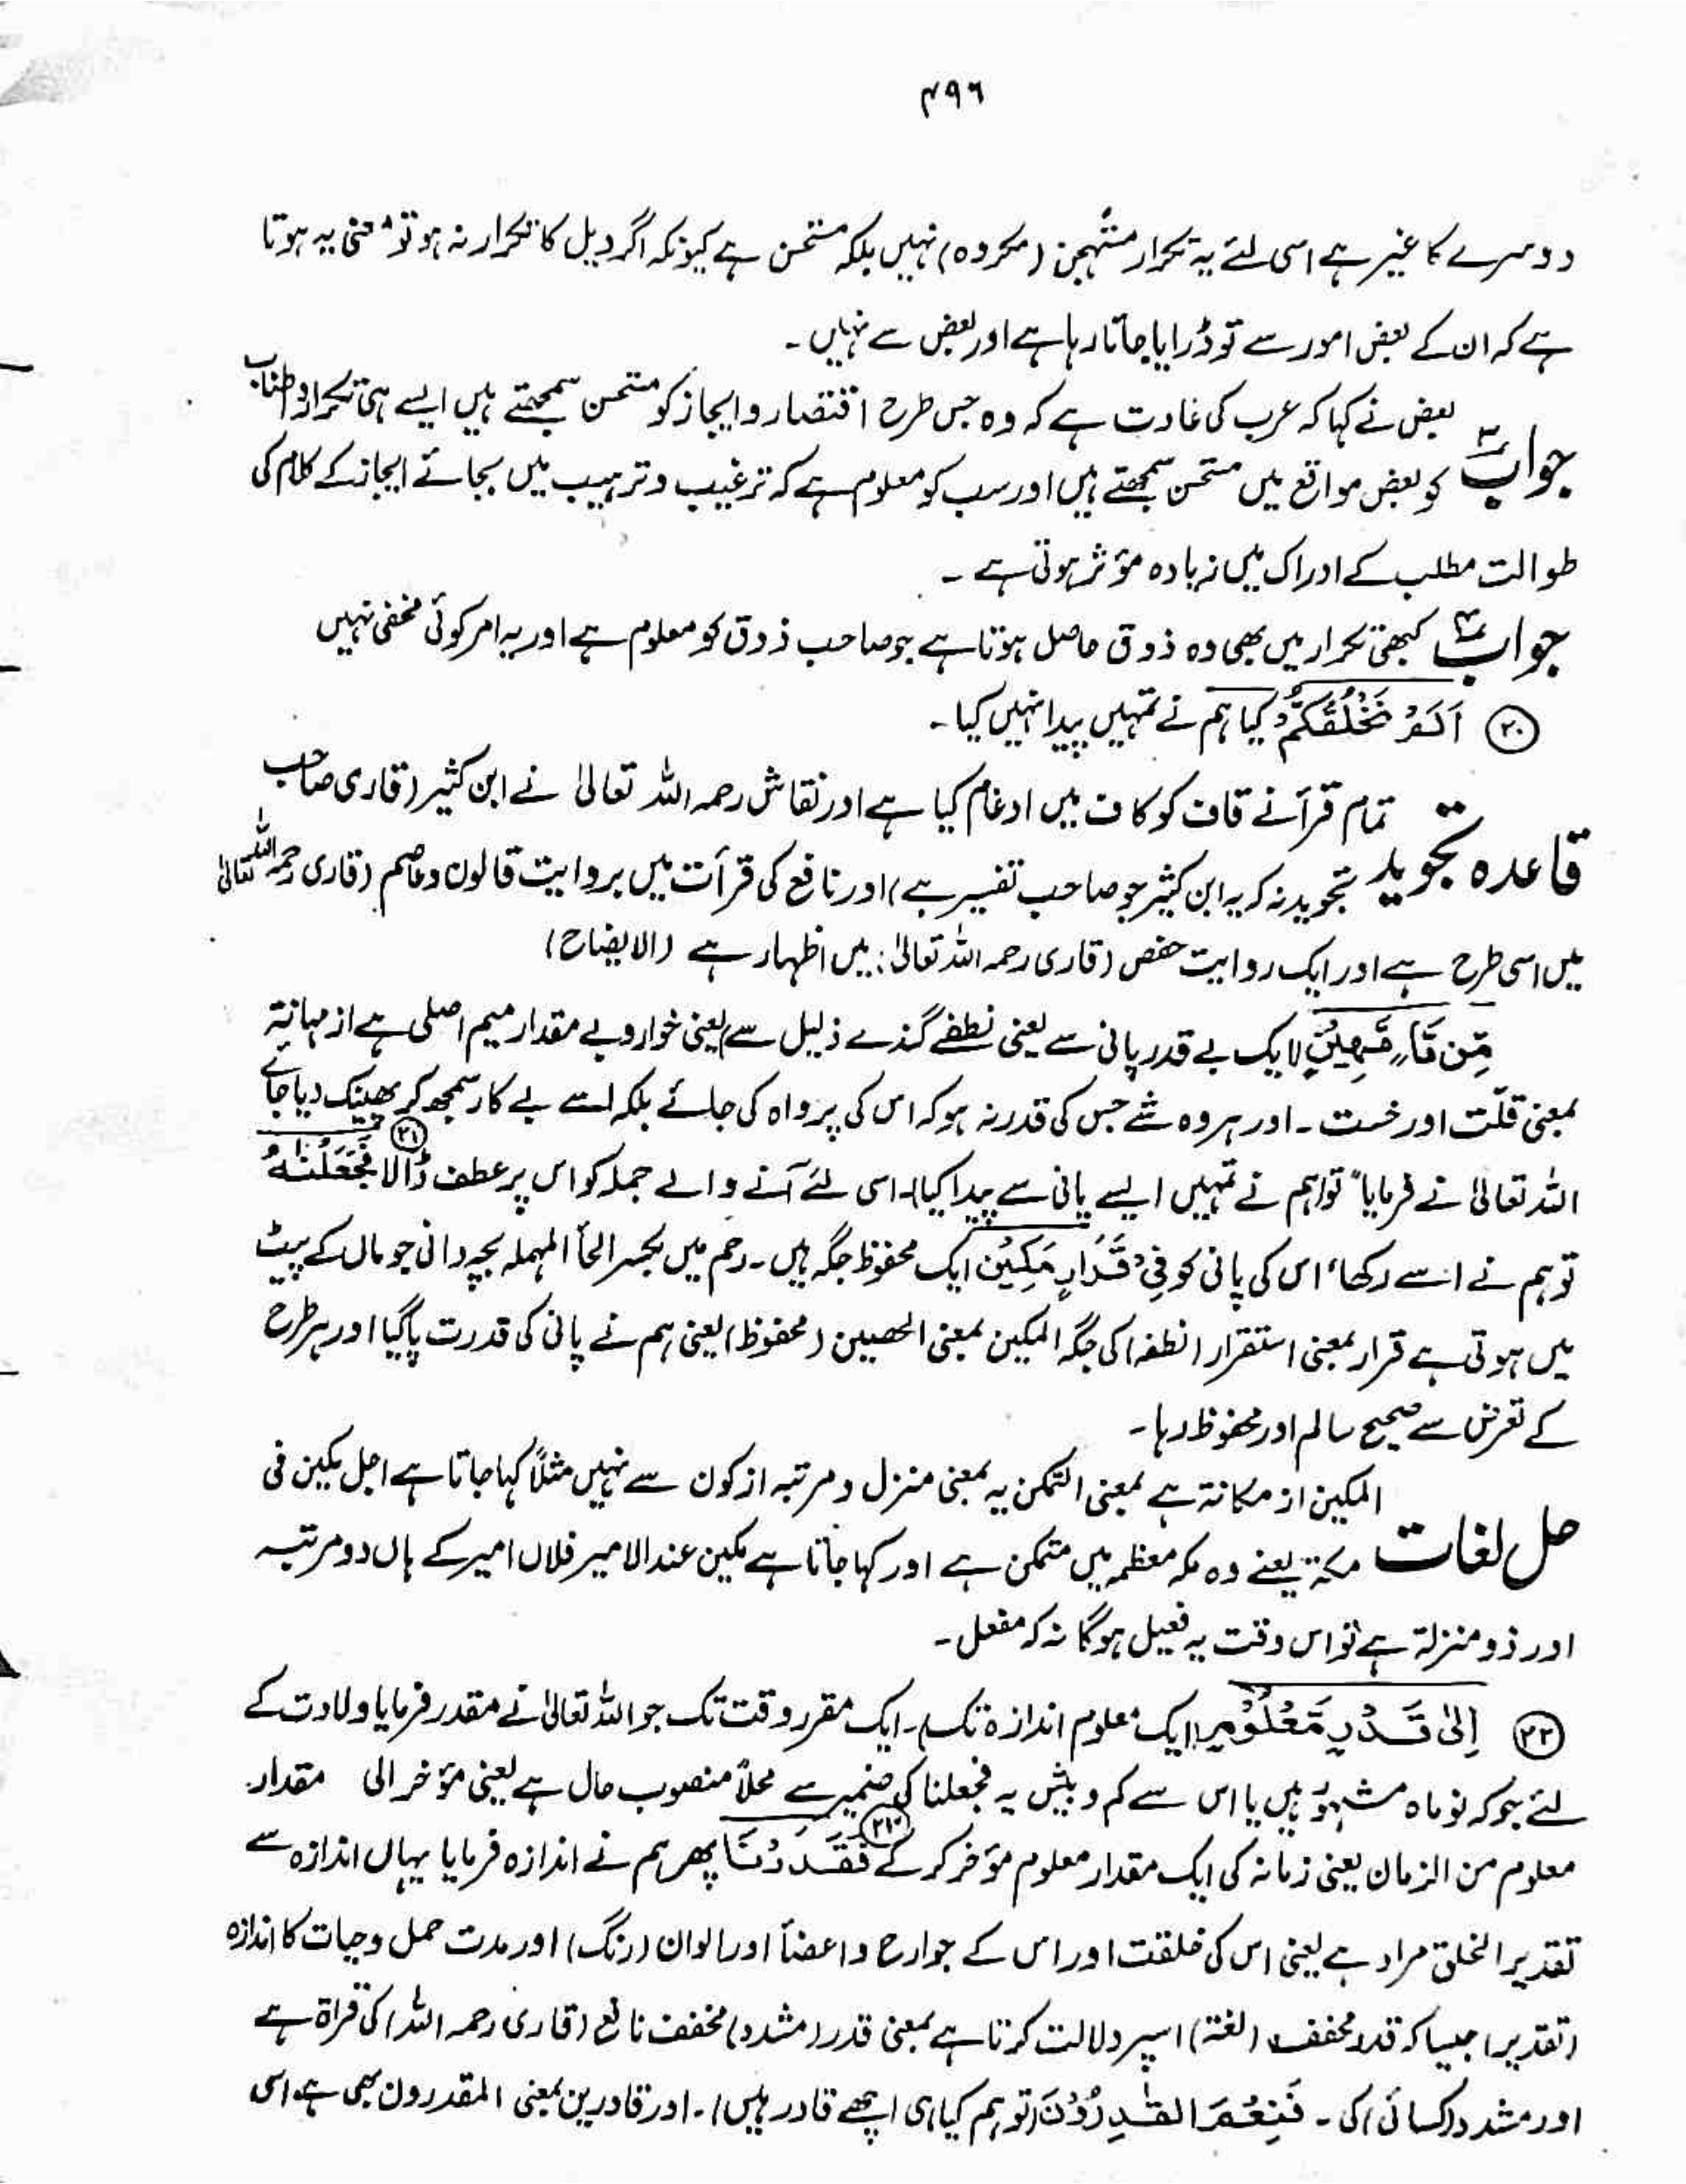 ۴۹۶
دوسرے کا غیر ہے اسی لئے یہ تکرار مستہجن (مکروہ) نہیں بلکہ مستحسن ہے کیونکہ اگر دیل کا تکرار نہ ہو تو معنیٰ یہ ہوتا
ہے کہ ان کے بعض امور سے تو ڈرایا جاتا رہا ہے اور بعض سے نہیں ۔
جواب ۳ بعض نے کہا کہ عرب کی عادت ہے کہ وہ جس طرح اقتصار و ایجاز کو مستحسن سمجھتے ہیں ایسے ہی تکرار و اطناب
کو بعض مواقع میں مستحسن سمجھتے ہیں اور سب کو معلوم ہے کہ ترغیب و ترہیب میں بجائے ایجاز کے کلام کی
طوالت مطلب کے ادراک میں زیادہ مؤثر ہوتی ہے ۔
جواب ۴ کبھی تکرار میں بھی وہ ذوق حاصل ہوتا ہے جو صاحب ذوق کو معلوم ہے اور یہ امر کوئی مخفی نہیں
۲۰ اَلَمْ نَخْلُقْكُّمْ کیا ہم نے تمہیں پیدا نہیں کیا ۔
قاعدہ تجوید تمام قرآ نے قاف کو کاف میں ادغام کیا ہے اور نقاش رحمہ اللہ تعالیٰ نے ابن کثیر (قاری صاحب
تجوید نہ کہ یہ ابن کثیر جو صاحب تفسیر ہے) اور نافع کی قرأت میں بروایت قالون و عاصم (قاری رحمہ اللہ تعالیٰ
میں اسی طرح ہے اور ایک روایت حفص (قاری رحمہ اللہ تعالیٰ) میں اظہار ہے (الایضاح)
مِّن مَّآءٍ مَّهِيْنٍ لا ایک بے قدر پانی سے یعنی نطفے گندے ذلیل سے یعنی خوار و بے مقدار میم اصلی ہے از مہانۃ
بمعنی قلّت اور خست ۔ اور ہر وہ شے جس کی قدر نہ ہو کہ اس کی پرواہ کی جائے بلکہ اسے بے کار سمجھ کر پھینک دیا جائے
اللہ تعالیٰ نے فرمایا تو ہم نے تمہیں ایسے پانی سے پیدا کیا ۔ اسی لئے آنے والے جملہ کو اس پر عطف ڈالا ۲۱ فَجَعَلْنٰهُ
تو ہم نے اسے رکھا، اس کی پانی کو فِیْ قَرَارٍ مَّكِيْن ایک محفوظ جگہ میں ۔ رحم میں بکسر الحأ المہملہ بچہ دانی جو ماں کے پیٹ
میں ہوتی ہے قرار بمعنی استقرار (نطفہ) کی جگہ المکین بمعنی الحصین (محفوظ) یعنی ہم نے پانی کی قدرت پاگیا اور ہر طرح
کے تعرض سے صحیح سالم اور محفوظ رہا ۔
حل لغات المکین از مکانۃ ہے بمعنی التمکن یہ بمعنی منزل و مرتبہ از کون سے نہیں مثلاً کہا جاتا ہے اجل مکین فی
مکۃ یعنے وہ مکہ معظمہ میں متمکن ہے اور کہا جاتا ہے مکین عند الامیر فلاں امیر کے ہاں ذو مرتبہ
اور ذو منزلۃ ہے تو اس وقت یہ فعیل ہوگا نہ کہ مفعل ۔
۲۲ اِلٰى قَدَرٍ مَّعْلُوْمٍ ایک معلوم اندازہ تک ۔ ایک مقرر وقت تک جو اللہ تعالیٰ نے مقدر فرمایا ولادت کے
لئے جو کہ نو ماہ مشہور ہیں یا اس سے کم و بیش یہ فجعلنا کی ضمیر سے محلاً منصوب حال ہے یعنی مؤخر الی مقدار
معلوم من الزمان یعنی زمانہ کی ایک مقدار معلوم مؤخر کر کے ۲۳ فَقَدَرْنَا پھر ہم نے اندازہ فرمایا یہاں اندازہ سے
تقدیر الخلق مراد ہے یعنی اس کی خلقت اور اس کے جوارح و اعضأ اور الوان (رنگ) اور مدت حمل و حیات کا اندازہ
(تقدیر) جیسا کہ قدر مخفف (لغۃ) اسپر دلالت کرتا ہے بمعنی قدر (مشدد) مخفف نافع (قاری رحمہ اللہ) کی قراۃ ہے
اور مشدد (کسائی) کی ۔ فَنِعْمَ الْقٰدِرُوْنَ (تو ہم کیا ہی اچھے قادر ہیں) ۔ اور قادرین بمعنی المقدرون بھی ہے اسی